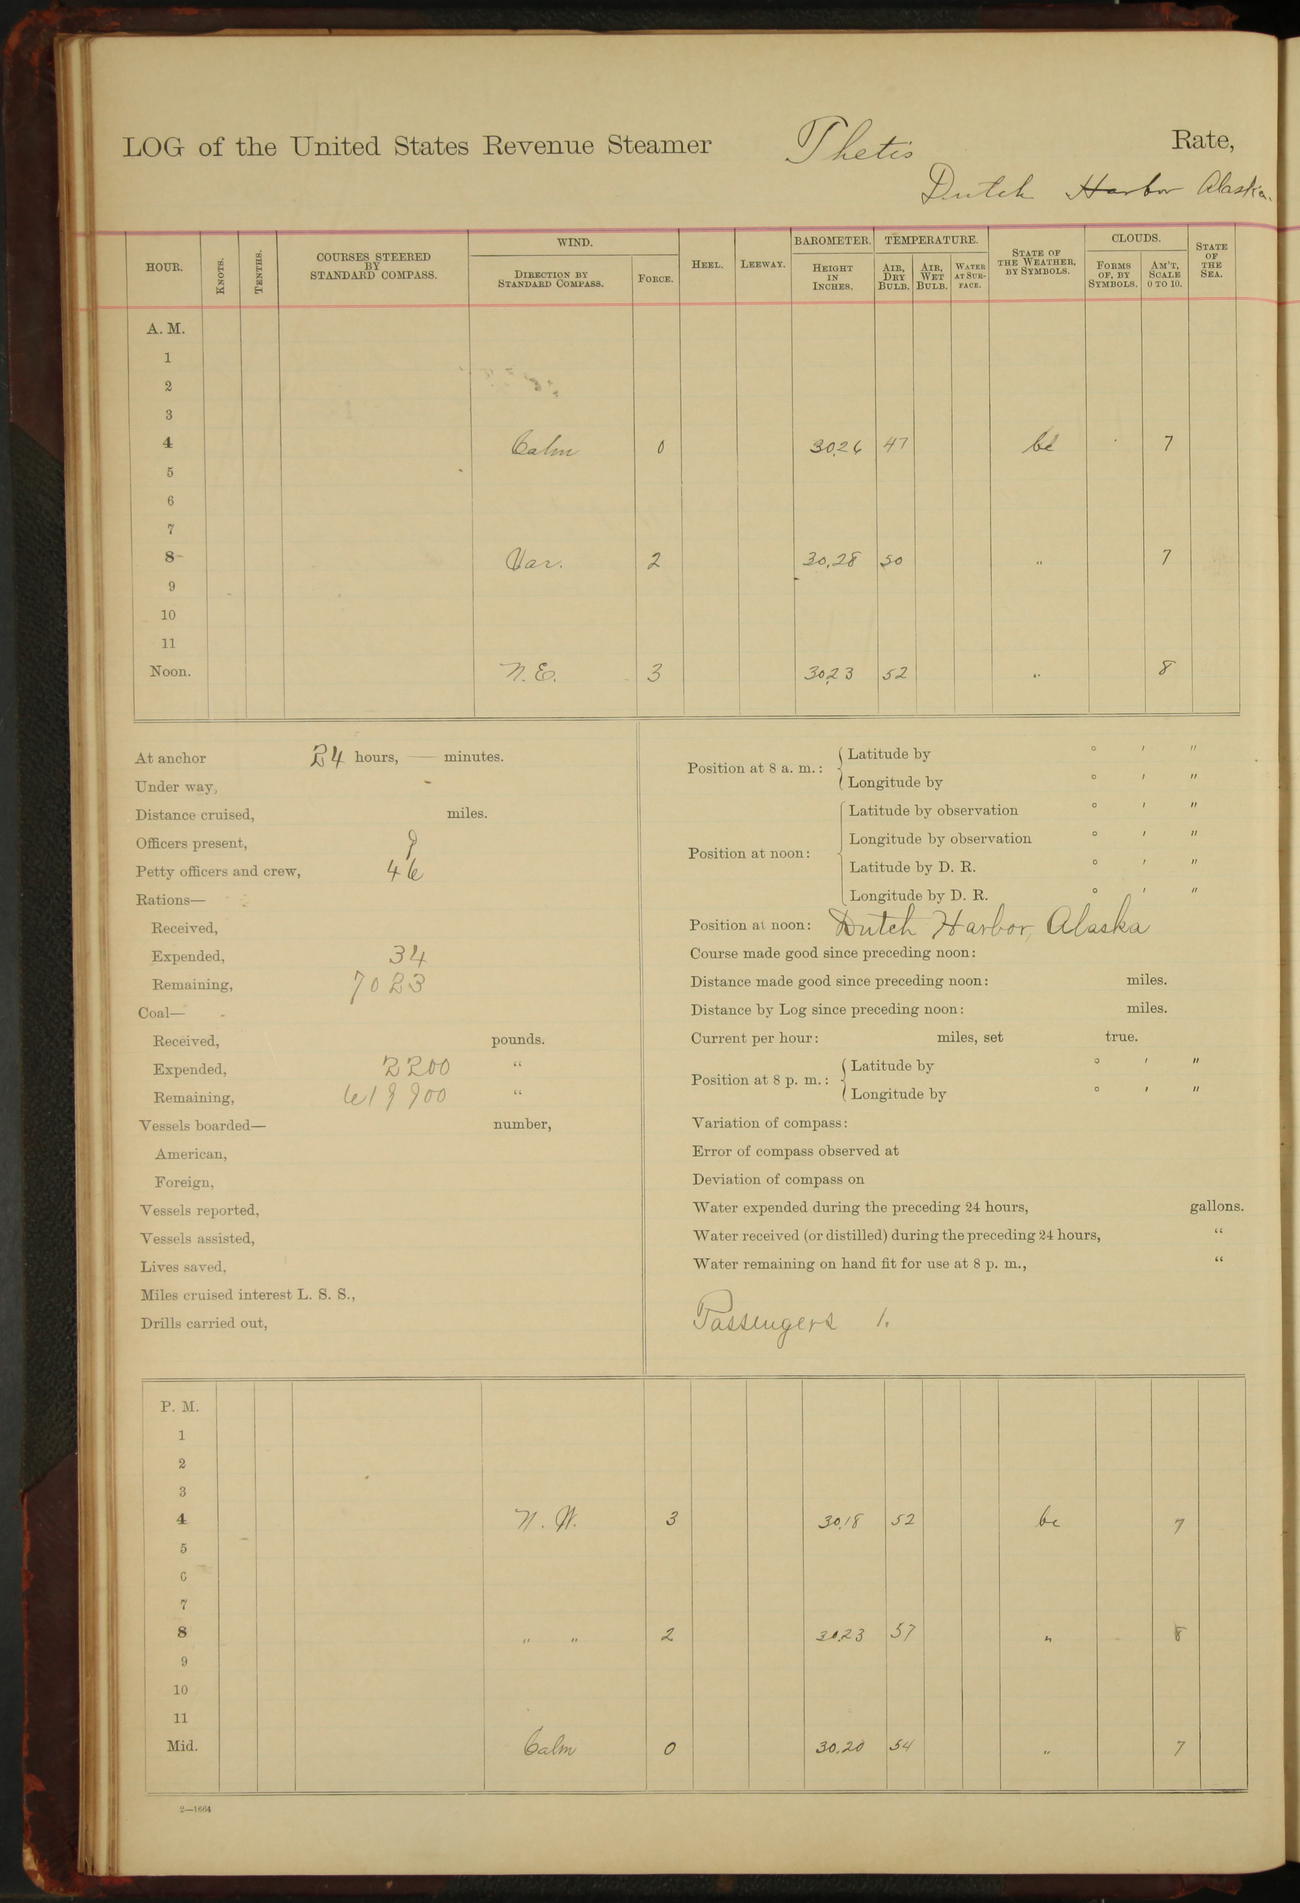 LOG of the United States Revenue Steamer Thetis Rate,
Dutch Harbor Alaska.
HOUR. KNOTS. TENTHS. COURSES STEERED BY STANDARD COMPASS. WIND. DIRECTION BY STANDARD COMPASS. FORCE. HEEL. LEEWAY. BAROMETER. HEIGHT IN INCHES. TEMPERATURE. AIR, DRY BULB. AIR, WET BULB. WATER AT SURFACE. STATE OF THE WEATHER, BY SYMBOLS. CLOUDS. FORMS OF, BY SYMBOLS. AM'T, SCALE 0 TO 10. STATE OF THE SEA.
A. M.
1
2
3
4 Calm 0 30.26 47 bc 7
5
6
7
8 Var. 2 30.28 50 " 7
9
10
11
Noon. N.E. 3 30.23 52 " 8
At anchor 24 hours, — minutes.
Under way,
Distance cruised, miles.
Officers present, 9
Petty officers and crew, 46
Rations—
Received,
Expended, 34
Remaining, 7023
Coal—
Received, pounds.
Expended, 2200 "
Remaining, 619900 "
Vessels boarded— number,
American,
Foreign,
Vessels reported,
Vessels assisted,
Lives saved,
Miles cruised interest L. S. S.,
Drills carried out,
Position at 8 a. m.: Latitude by ° ′ ″
Longitude by ° ′ ″
Position at noon: Latitude by observation ° ′ ″
Longitude by observation ° ′ ″
Latitude by D. R. ° ′ ″
Longitude by D. R. ° ′ ″
Position at noon: Dutch Harbor, Alaska
Course made good since preceding noon:
Distance made good since preceding noon: miles.
Distance by Log since preceding noon: miles.
Current per hour: miles, set true.
Position at 8 p. m.: Latitude by ° ′ ″
Longitude by ° ′ ″
Variation of compass:
Error of compass observed at
Deviation of compass on
Water expended during the preceding 24 hours, gallons.
Water received (or distilled) during the preceding 24 hours, "
Water remaining on hand fit for use at 8 p. m., "
Passengers 1.
P. M.
1
2
3
4 N. W. 3 30.18 52 bc 7
5
6
7
8 " " 2 30.23 57 " 8
9
10
11
Mid. Calm 0 30.20 54 " 7
2—1664